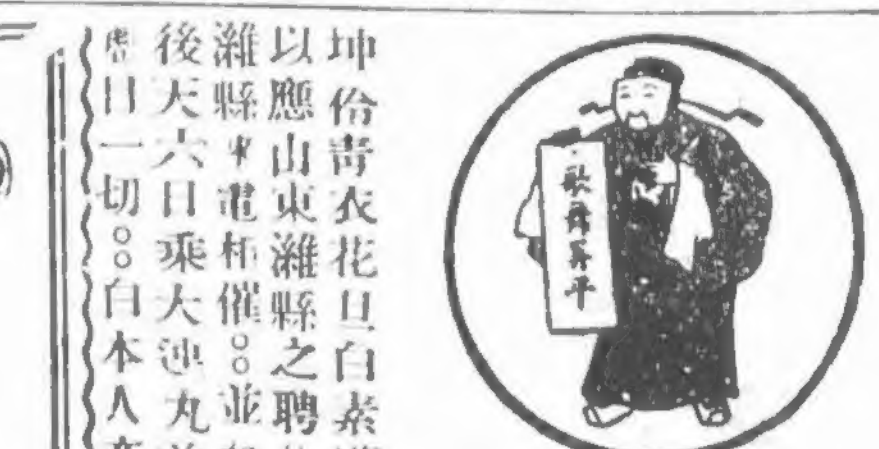 歌舞昇平
坤伶靑衣花旦白素
以應山東濰縣之聘
濰縣來電相催○○並
後天六日乘大連丸
日一切○○白本人